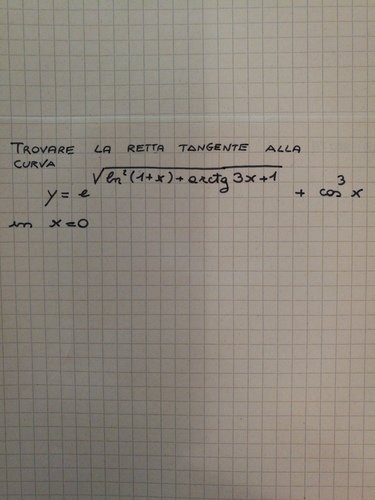 TROVARE LA RETTA TANGENTE ALLA
CURVA
y = e^√(ln²(1+x) + arctg 3x + 1) + cos³ x
in x=0